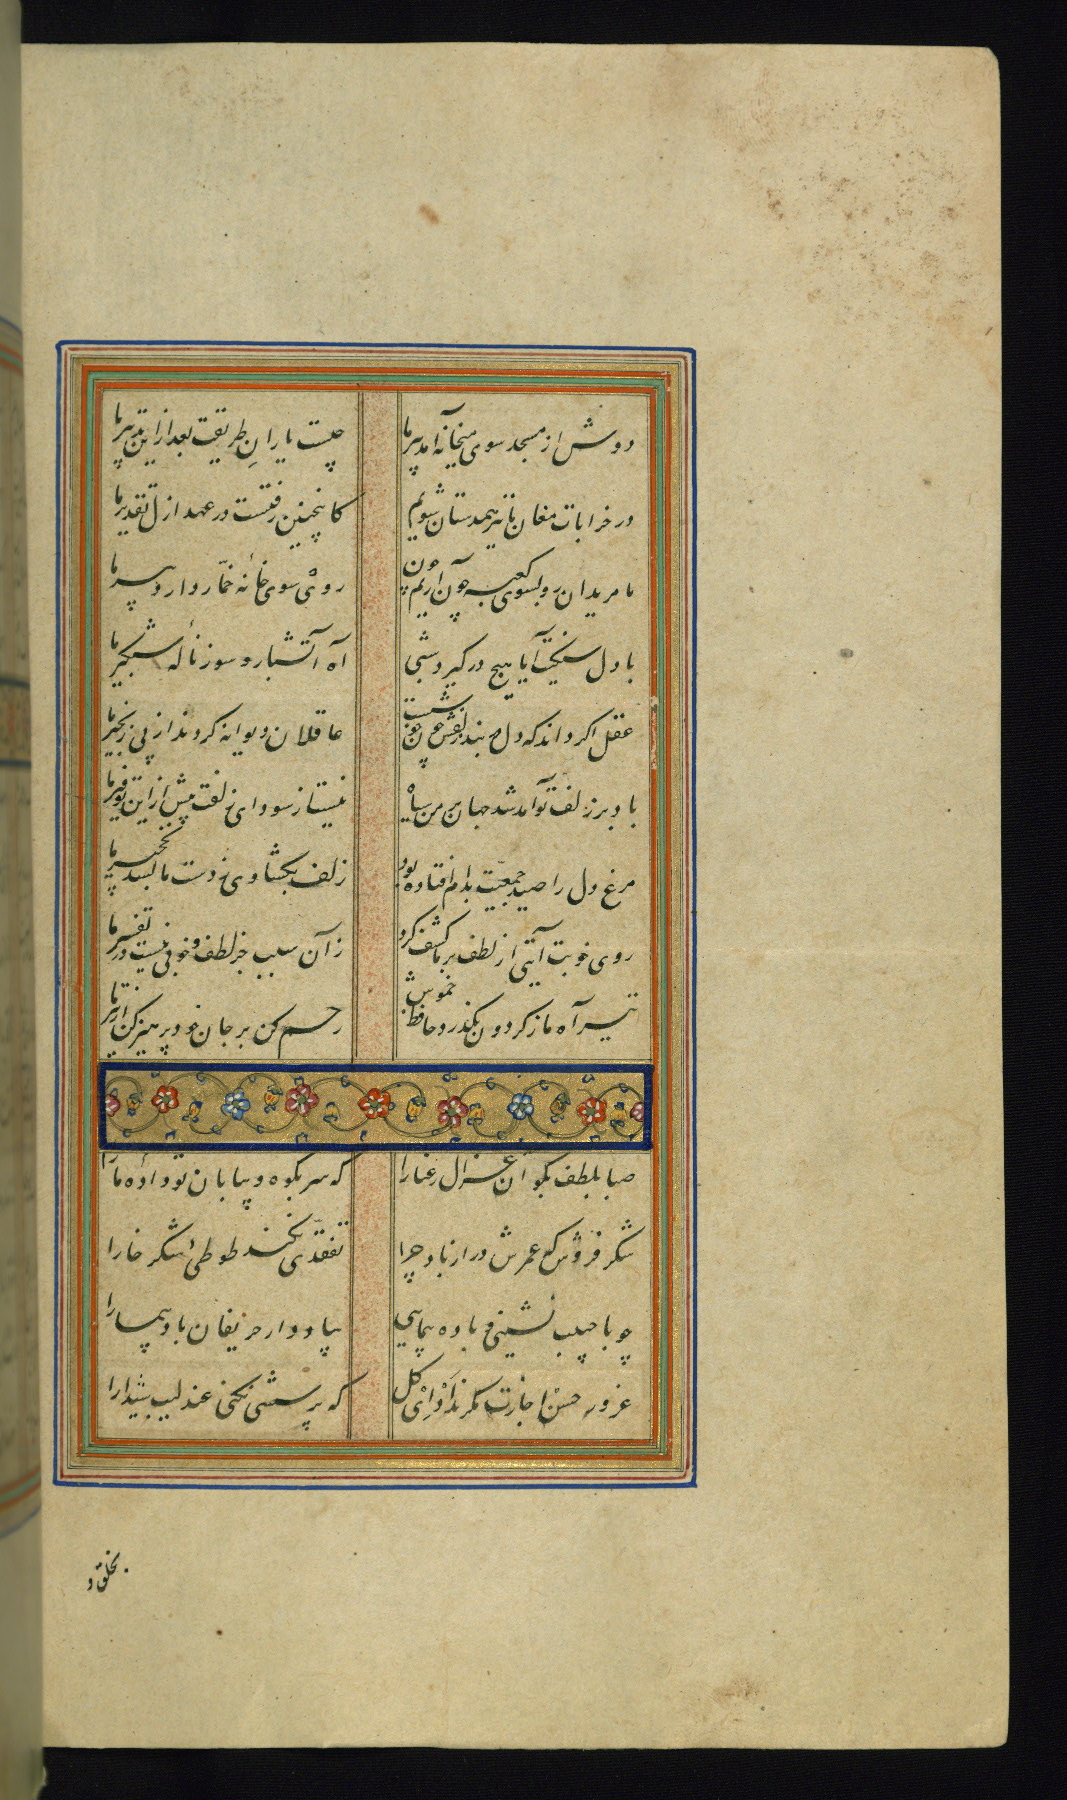 دوش از مسجد سوی میخانه آمد پیر ما چیست یاران طریقت بعد ازین تدبیر ما
در خرابات مغان ما نیز همدستان شویم کاینچنین رفتست در عهد ازل تقدیر ما
ما مریدان رو بسوی کعبه چون آریم چون روی سوی خانه خمّار دارد پیر ما
با دل سنگینت آیا هیچ درگیرد شبی آه آتشبار و سوز ناله شبگیر ما
عقل اگر داند که دل در بند زلفش چون خوشست عاقلان دیوانه گردند از پی زنجیر ما
باد بر زلف تو آمد شد جهان بر من سیاه نیست از سودای زلفت بیش ازین توفیر ما
مرغ دل را صید جمعیّت بدام افتاده بود زلف بگشادی ز دست ما بشد نخجیر ما
روی خوبت آیتی از لطف بر ما کشف کرد زان سبب جز لطف و خوبی نیست در تفسیر ما
تیر آه ما ز گردون بگذرد حافظ خموش رحم کن بر جان خود پرهیز کن از تیر ما
صبا بلطف بگو آن غزال رعنا را که سر بکوه و بیابان تو داده ما را
شکر فروش که عمرش دراز باد چرا تفقّدی نکند طوطی شکر خا را
چو با حبیب نشینی و باده پیمایی بیاد دار حریفان باد پیما را
غرور حسن اجازت مگر نداد ای گل که پرسشی نکنی عندلیب شیدا را
بخلق و